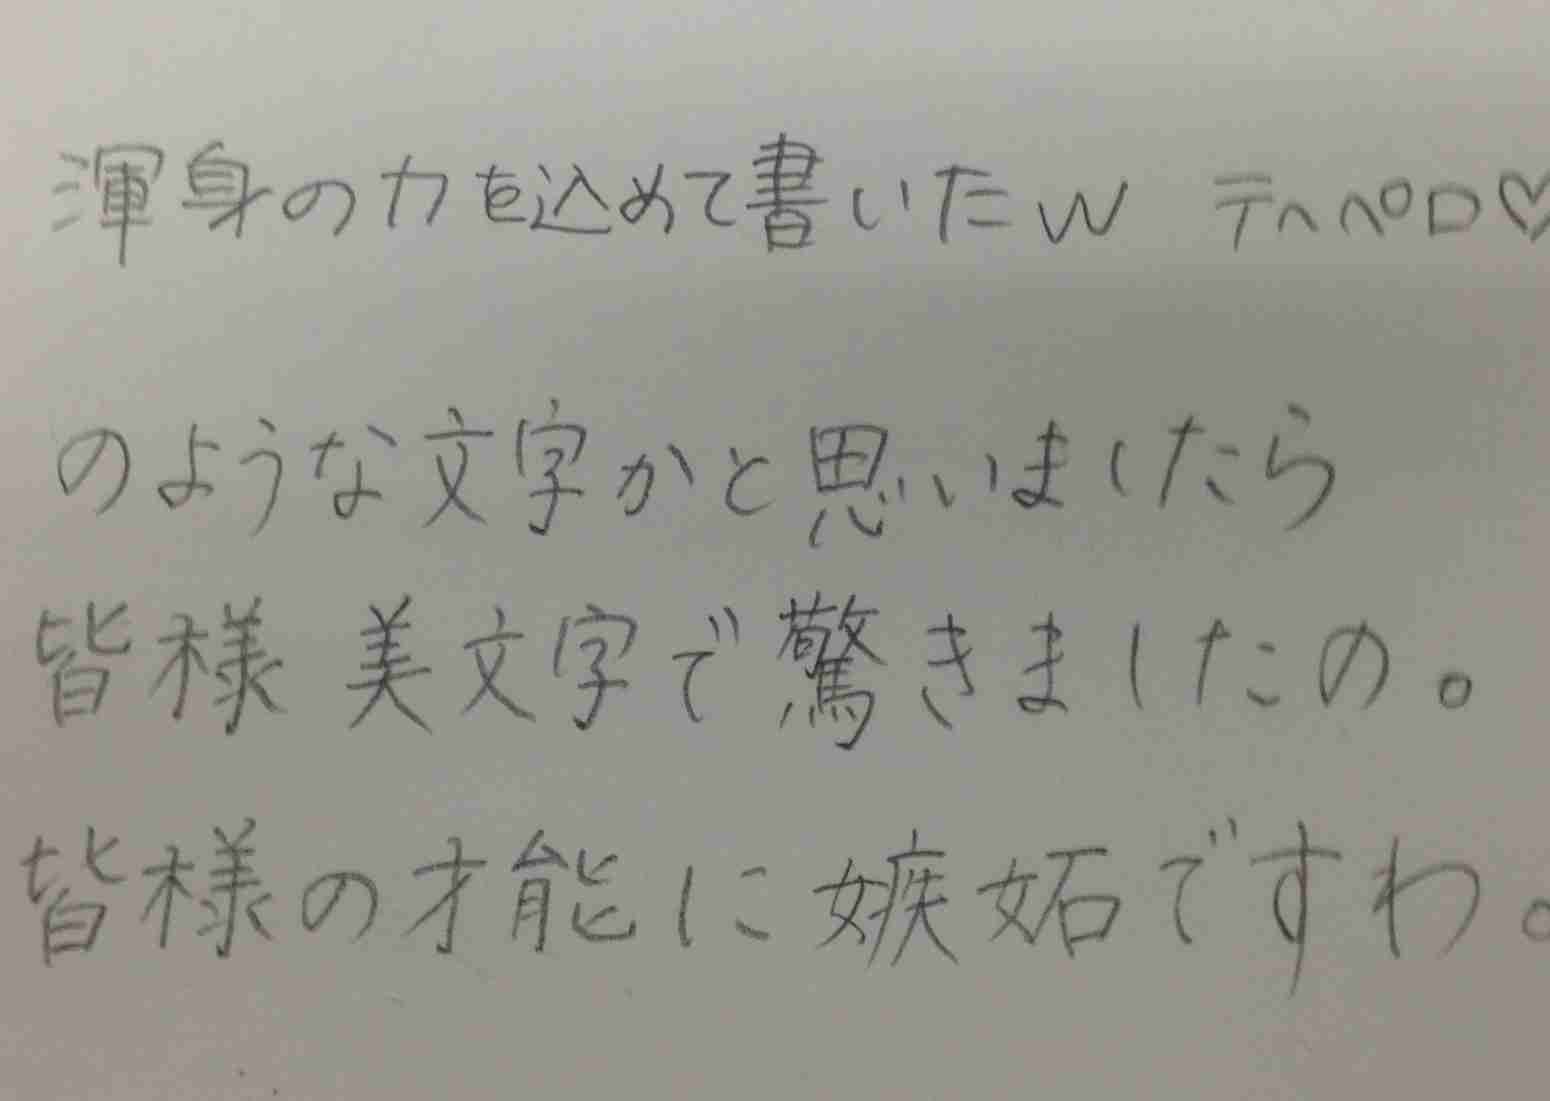 渾身の力を込めて書いたw テヘペロ♡
のような文字かと思いましたら
皆様 美文字で驚きましたの。
皆様の才能に嫉妬ですわ。